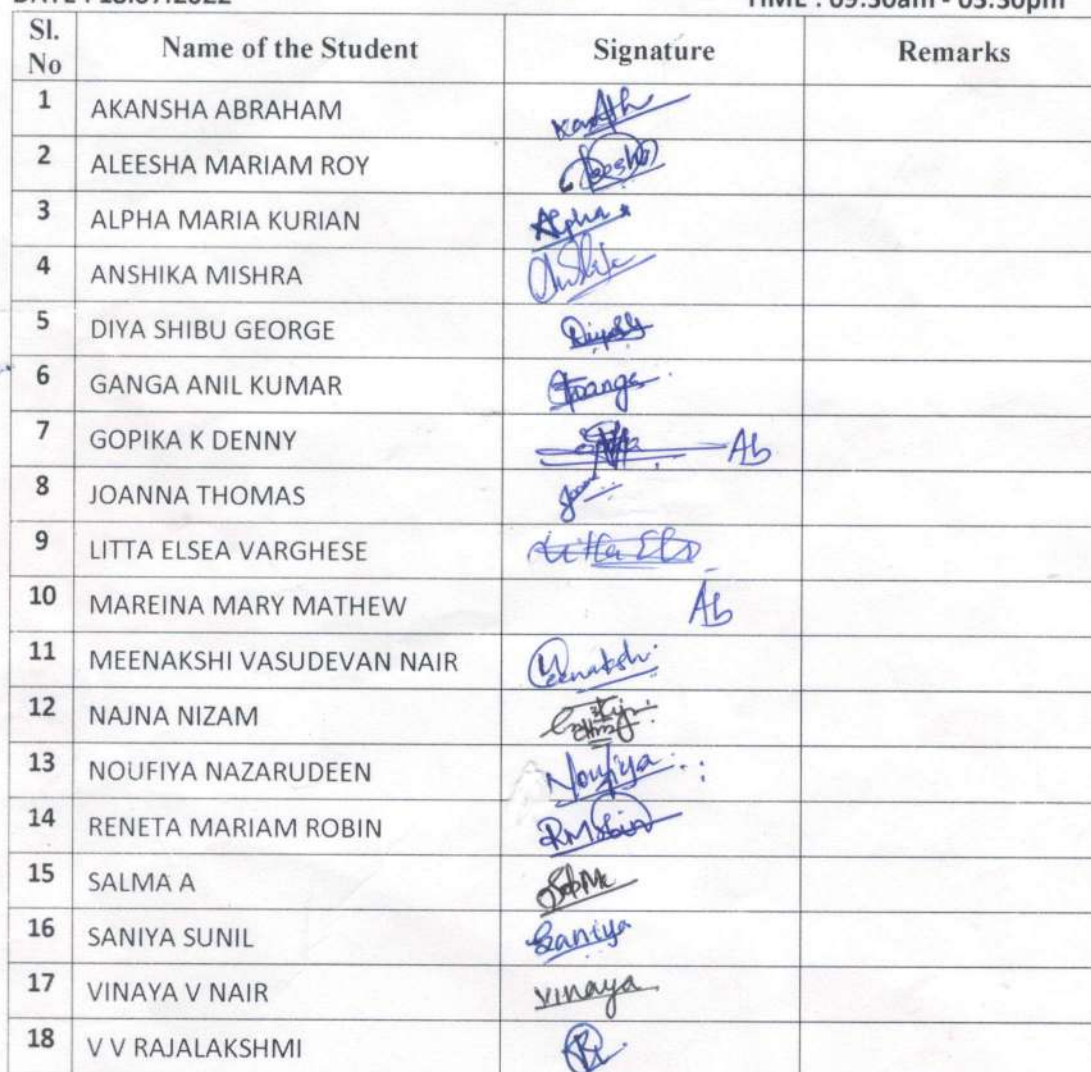 DATE : 18.07.2022 TIME : 09.30am - 03.30pm
Sl. No Name of the Student Signature Remarks
1 AKANSHA ABRAHAM
2 ALEESHA MARIAM ROY
3 ALPHA MARIA KURIAN Alpha
4 ANSHIKA MISHRA
5 DIYA SHIBU GEORGE
6 GANGA ANIL KUMAR Ganga
7 GOPIKA K DENNY Ab
8 JOANNA THOMAS
9 LITTA ELSEA VARGHESE Litta
10 MAREINA MARY MATHEW Ab
11 MEENAKSHI VASUDEVAN NAIR Meenakshi
12 NAJNA NIZAM
13 NOUFIYA NAZARUDEEN Noufiya
14 RENETA MARIAM ROBIN RMRobin
15 SALMA A
16 SANIYA SUNIL Saniya
17 VINAYA V NAIR Vinaya
18 V V RAJALAKSHMI